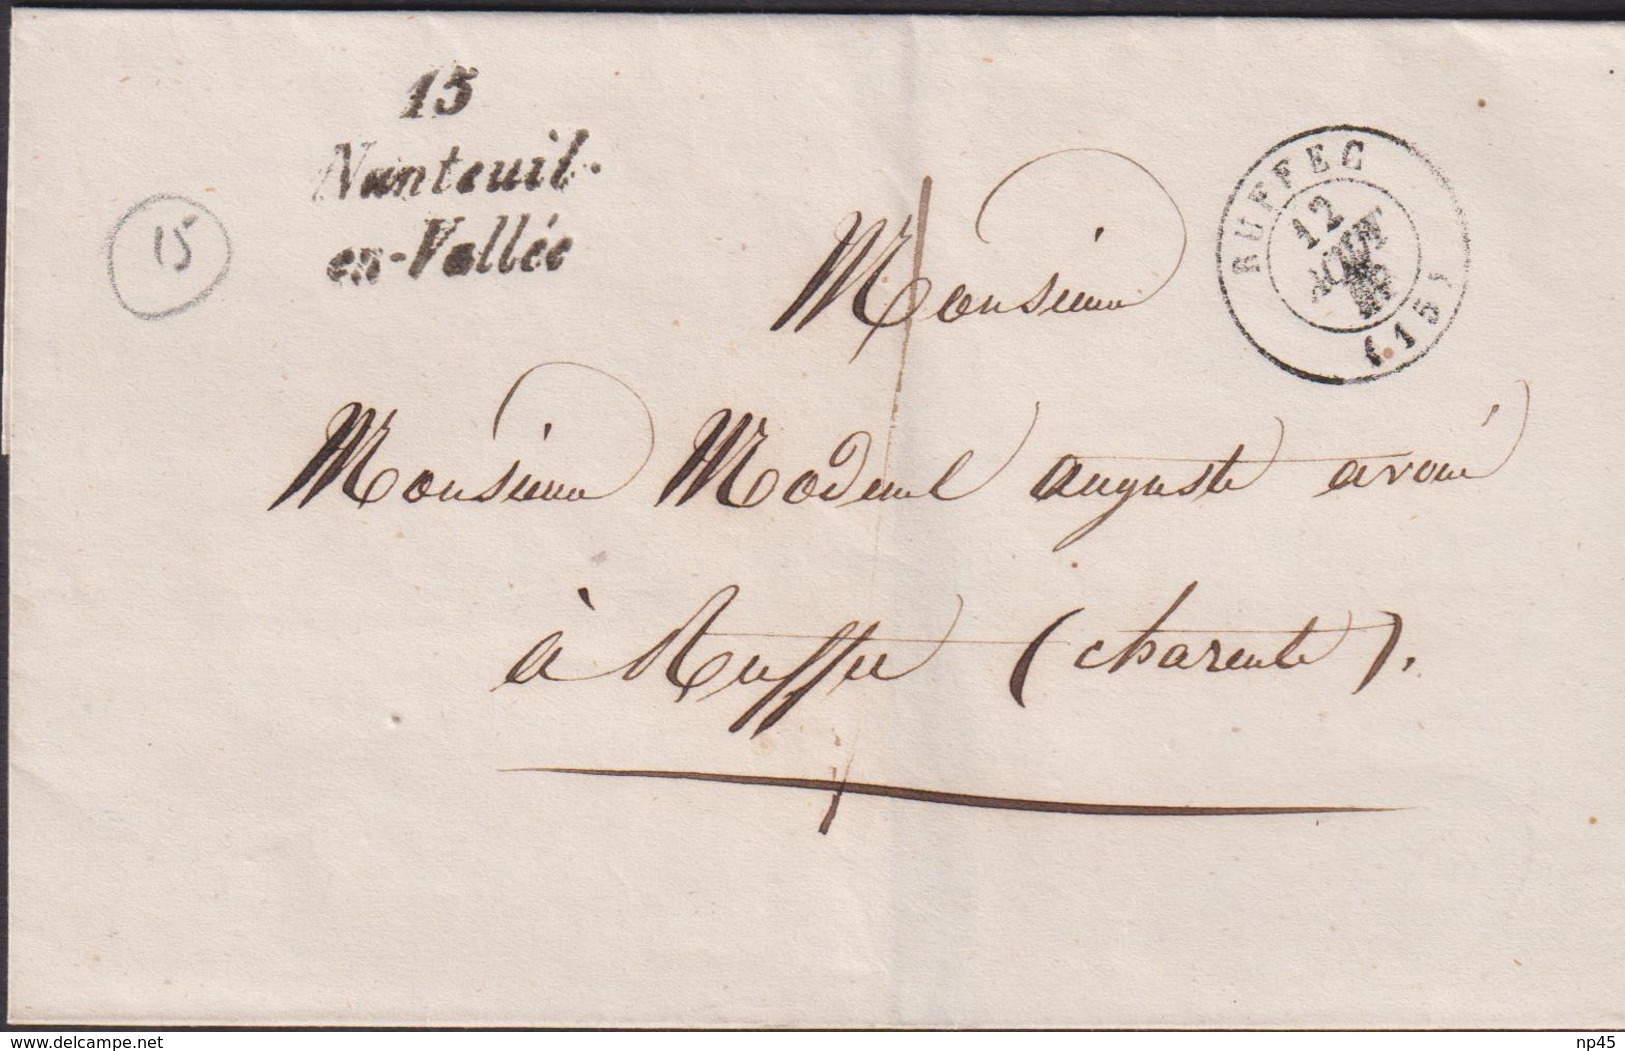 15
Nanteuil-
en-Vallée
15
RUFFEC
12
AOUT
(15)
Monsieur
Monsieur auguste avoué
à Ruffec (charente).
www.delcampe.net
np45